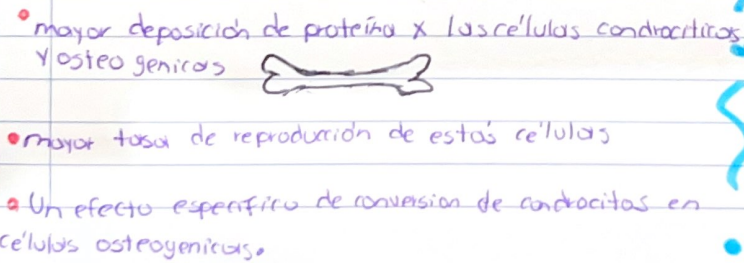 mayor deposición de proteína x las células condrocíticas
y osteogenicas
mayor tasa de reproducción de estas células
Un efecto específico de conversion de condrocitos en
células osteogenicas.